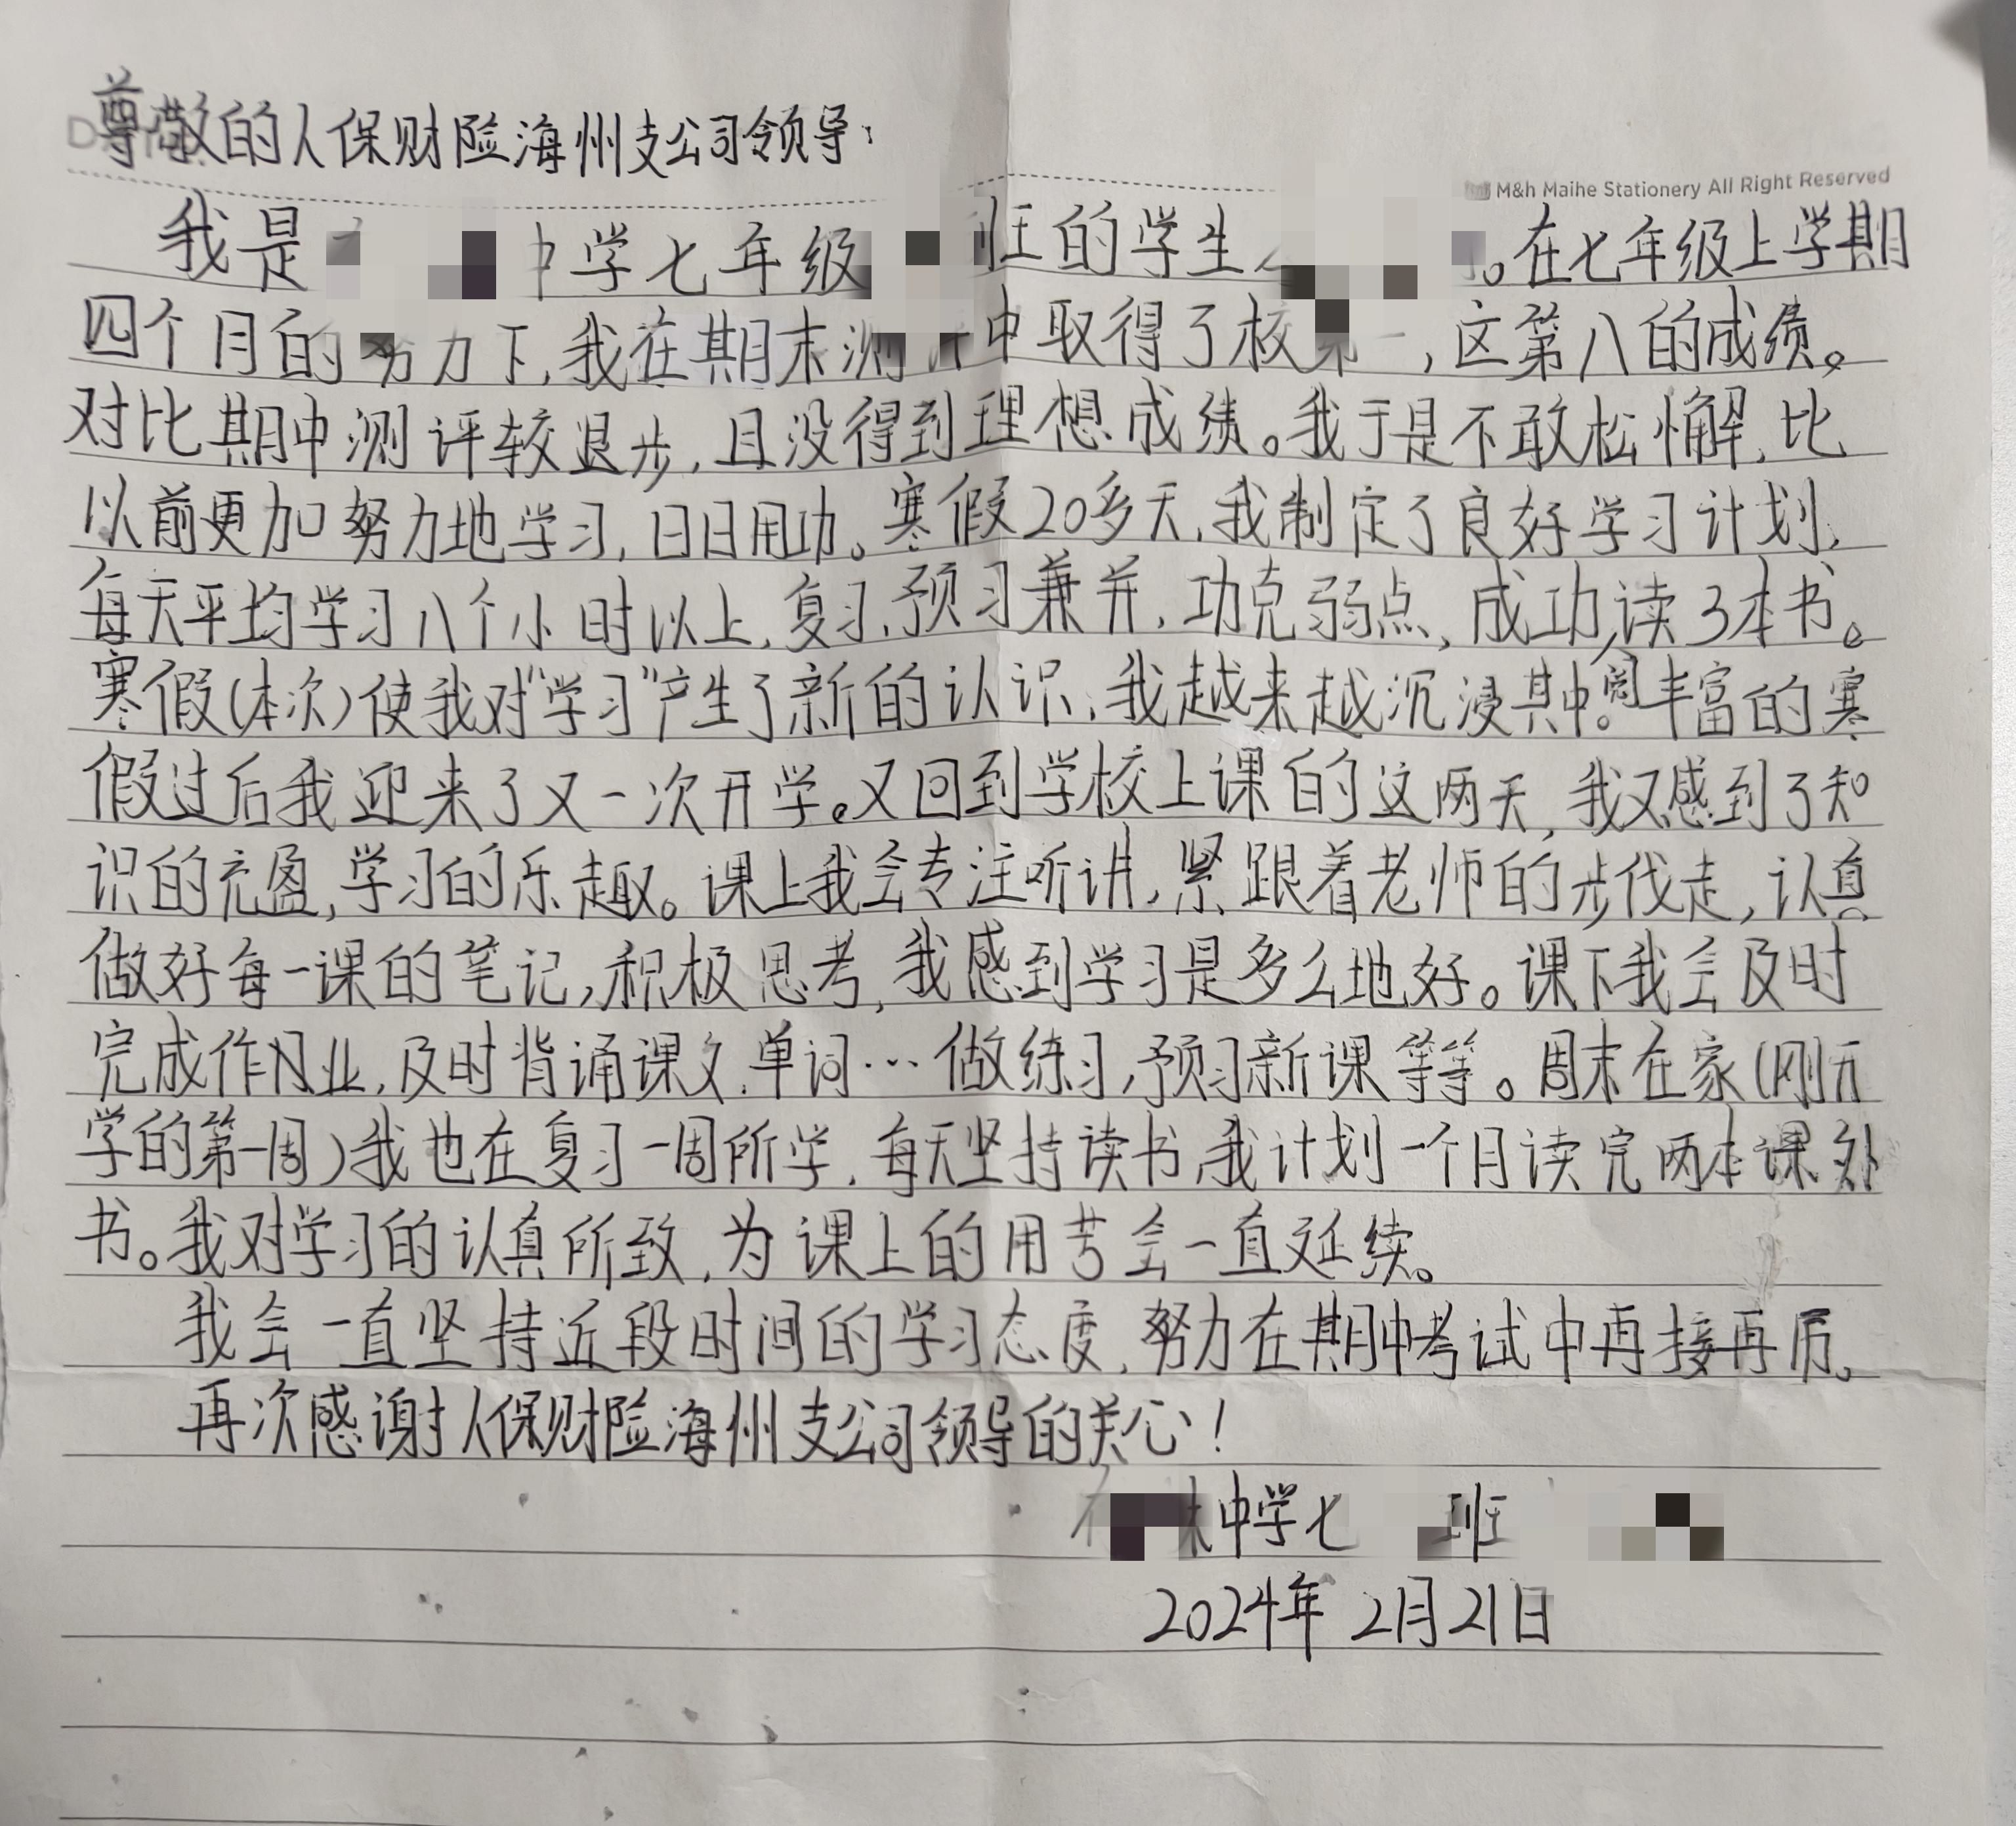 尊敬的人保财险海州支公司领导：
M&h Maihe Stationery All Right Reserved
我是 中学七年级 班的学生 。在七年级上学期
四个月的努力下,我在期末测评中取得了校第一,这第八的成绩。
对比期中测评较退步,且没得到理想成绩。我于是不敢松懈,比
以前更加努力地学习,日日用功。寒假20多天,我制定了良好学习计划,
每天平均学习八个小时以上,复习、预习兼并,功克弱点,成功读3本书。
寒假(本次)使我对“学习”产生了新的认识,我越来越沉浸其中。丰富的寒
假过后我迎来了又一次开学。又回到学校上课的这两天,我又感到了知
识的充盈,学习的乐趣。课上我会专注听讲,紧跟着老师的步伐走,认真
做好每一课的笔记,积极思考,我感到学习是多么地好。课下我会及时
完成作业,及时背诵课文、单词…做练习,预习新课等等。周末在家(刚开
学的第一周)我也在复习一周所学,每天坚持读书,我计划一个月读完两本课外
书。我对学习的认真所致,为课上的用苦会一直延续。
我会一直坚持近段时间的学习态度,努力在期中考试中再接再厉。
再次感谢人保财险海州支公司领导的关心!
中学七 班
2024年 2月21日